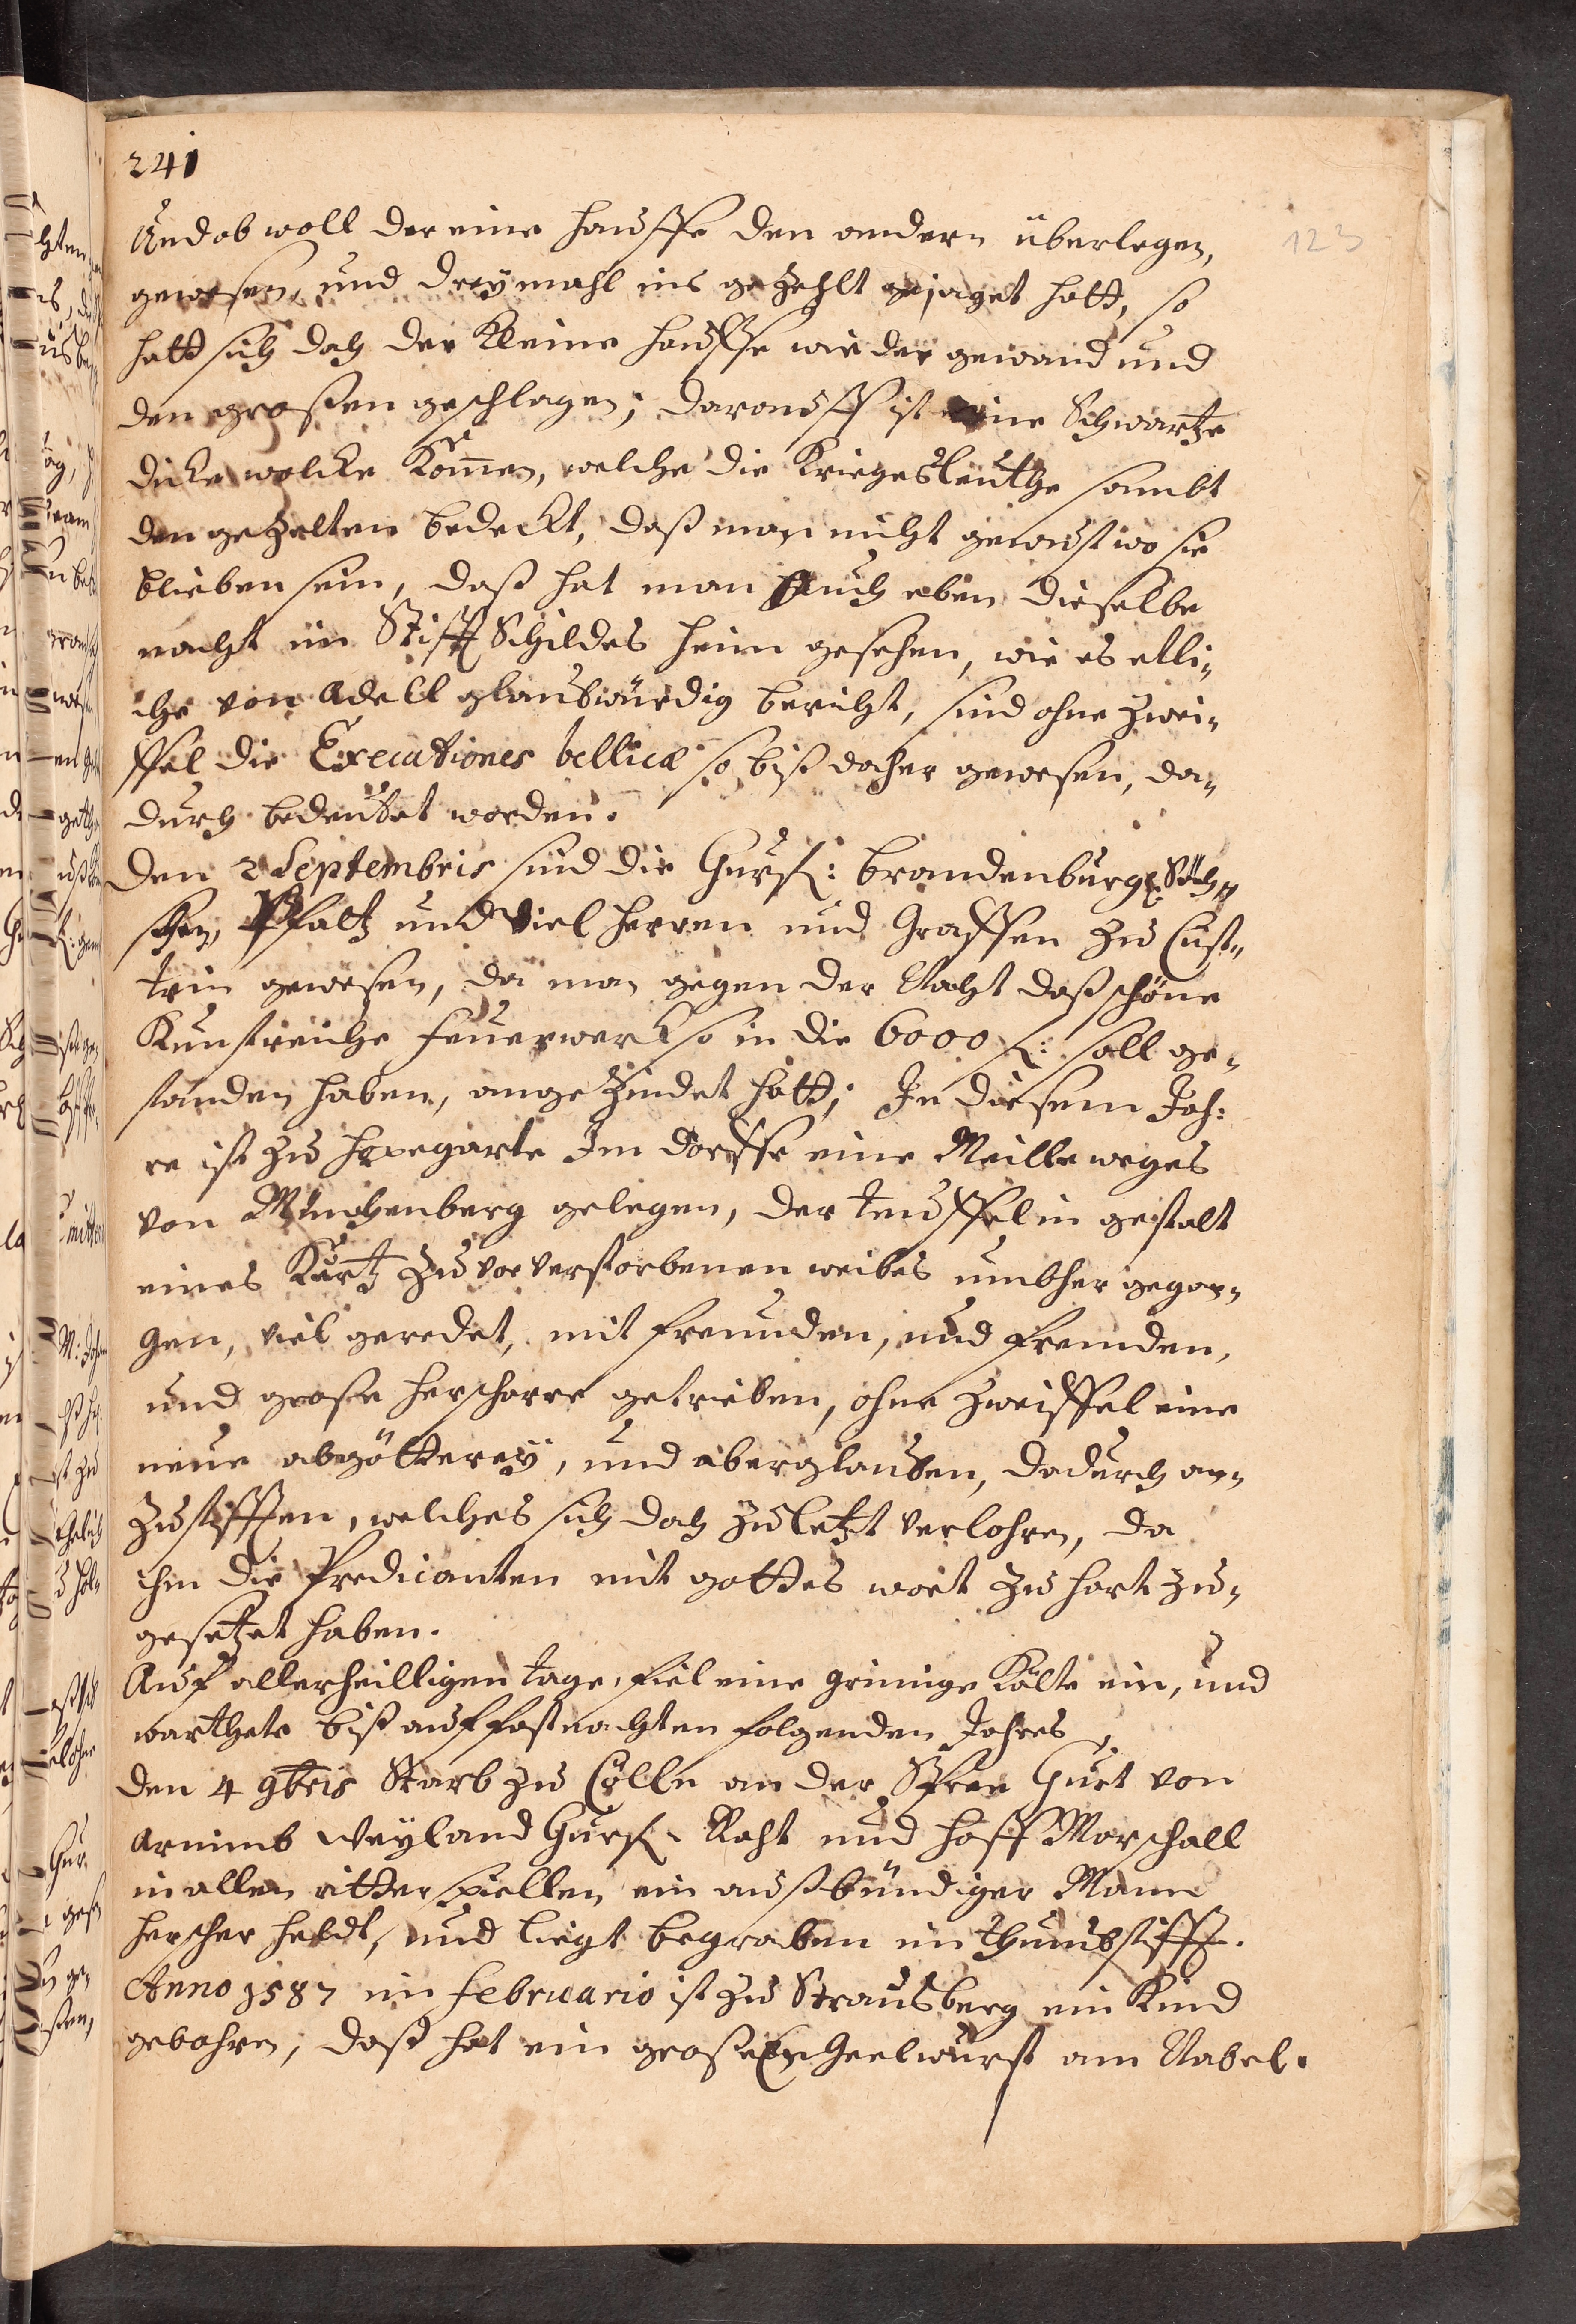 241
123
Und ob woll der eine hauffe den andern überlegen,
gewesen, und dreymahl ins gezehlt gejaget hatt, so
hatt sich doch der Kleine hauffe wieder gewand und
den großen geschlagen; darauff ist eine Schwartze
dicke wolcke Kom̄en, welche die Kriegesleuthe sambt
den gezelten bedeckt, daß man nicht gewust wo sie
blieben sein, daß hat man auch eben dieselbe
nacht im Stifft Schildesheim gesehen, wie es etli„
che von Adell glaubwürdig bericht, sind ohne Zwei„
ffel die Executiones bellicæ so biß daher gewesen, da„
durch bedeutet worden.
Den 2 Septembris sind die Churf: brandenburg: Säch„
schen, Pfaltz und Viel herren und Graffen zu Cüst„
trin gewesen, da man gegen der Nacht daß schöne
Kunstreiche feuerwerk so in die 6000 f: soll ge„
standen haben, angezündet hatt; In diesem Jah:
re ist zu hopegarte Im dorffe eine Meille weges
von Münchenberg gelegen, der teuffel in gestalt
eines Kurtz zuvor verstorbenen weibes umbher gegan„
gen, viel geredet, mit freunden, und fremden,
und große herscharre getrieben, ohne Zweiffel eine
neue abgötterey, und aberglauben, dadurch an„
zustifften, welches sich doch zuletzt verlohren, da
ihm die Predicanten mit gottes wort zu hart zu„
gesetzet haben.
Auf allerheilligen tage, fiel eine grimige Kälte ein, und
warthete biß auf fastnachten folgenden Jahres,
den 4 9bris Starb zu Cölln an der Spree Curt von
Arnimb weyland Churf. Raht und hoff Marschall
in allen ritterspiellen ein außbündiger Mann
herscher heldt, und liegt begraben im Thumbstifft.
Anno 1587 im Februario ist zu Strausberg ein Kind
gebohren, daß hat ein großes Geelwurst am Nabel.